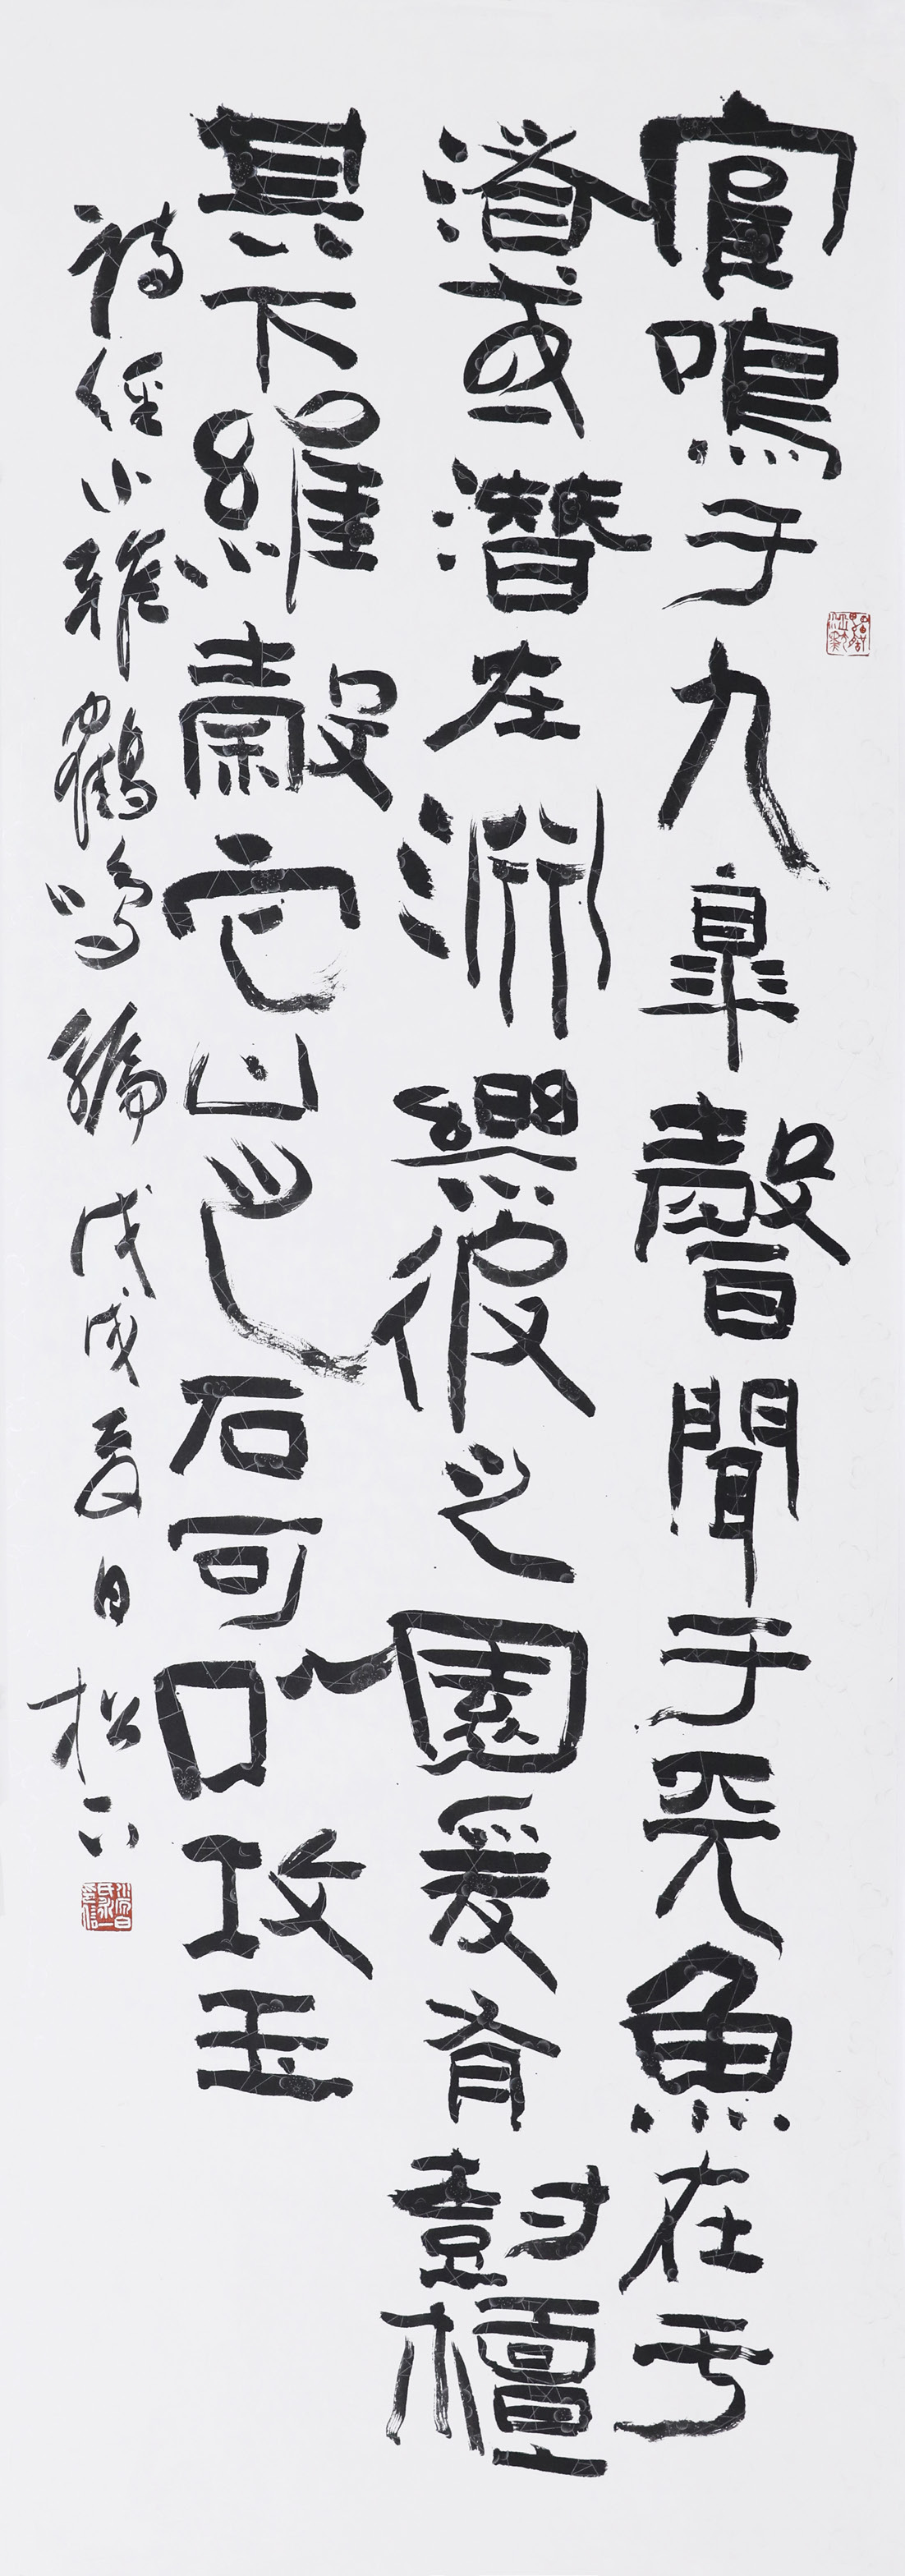 寉鳴于九皋聲聞于天魚在于
渚或潛在淵樂彼之園爰有尌檀
其下維穀它山之石可以攻玉
詩經小雅鶴鳴篇戊戌夏日松石